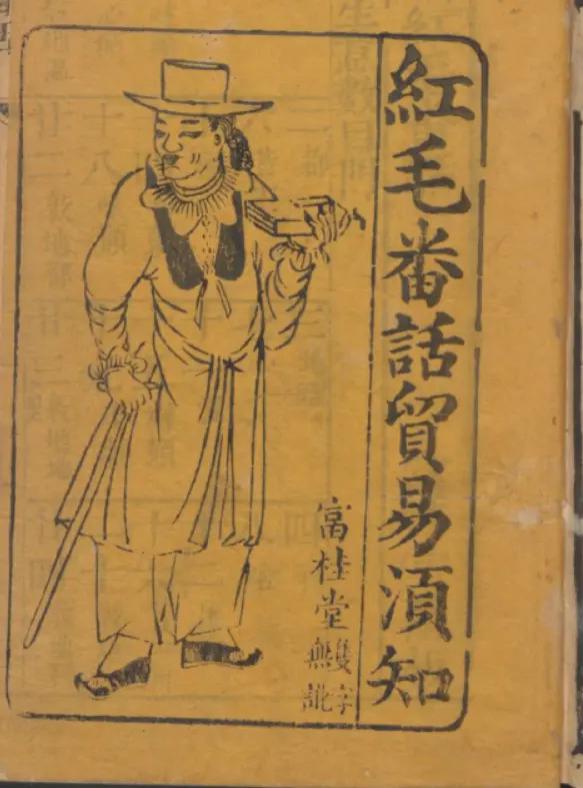 紅毛番話貿易湏知
富桂堂
隻字
無訛